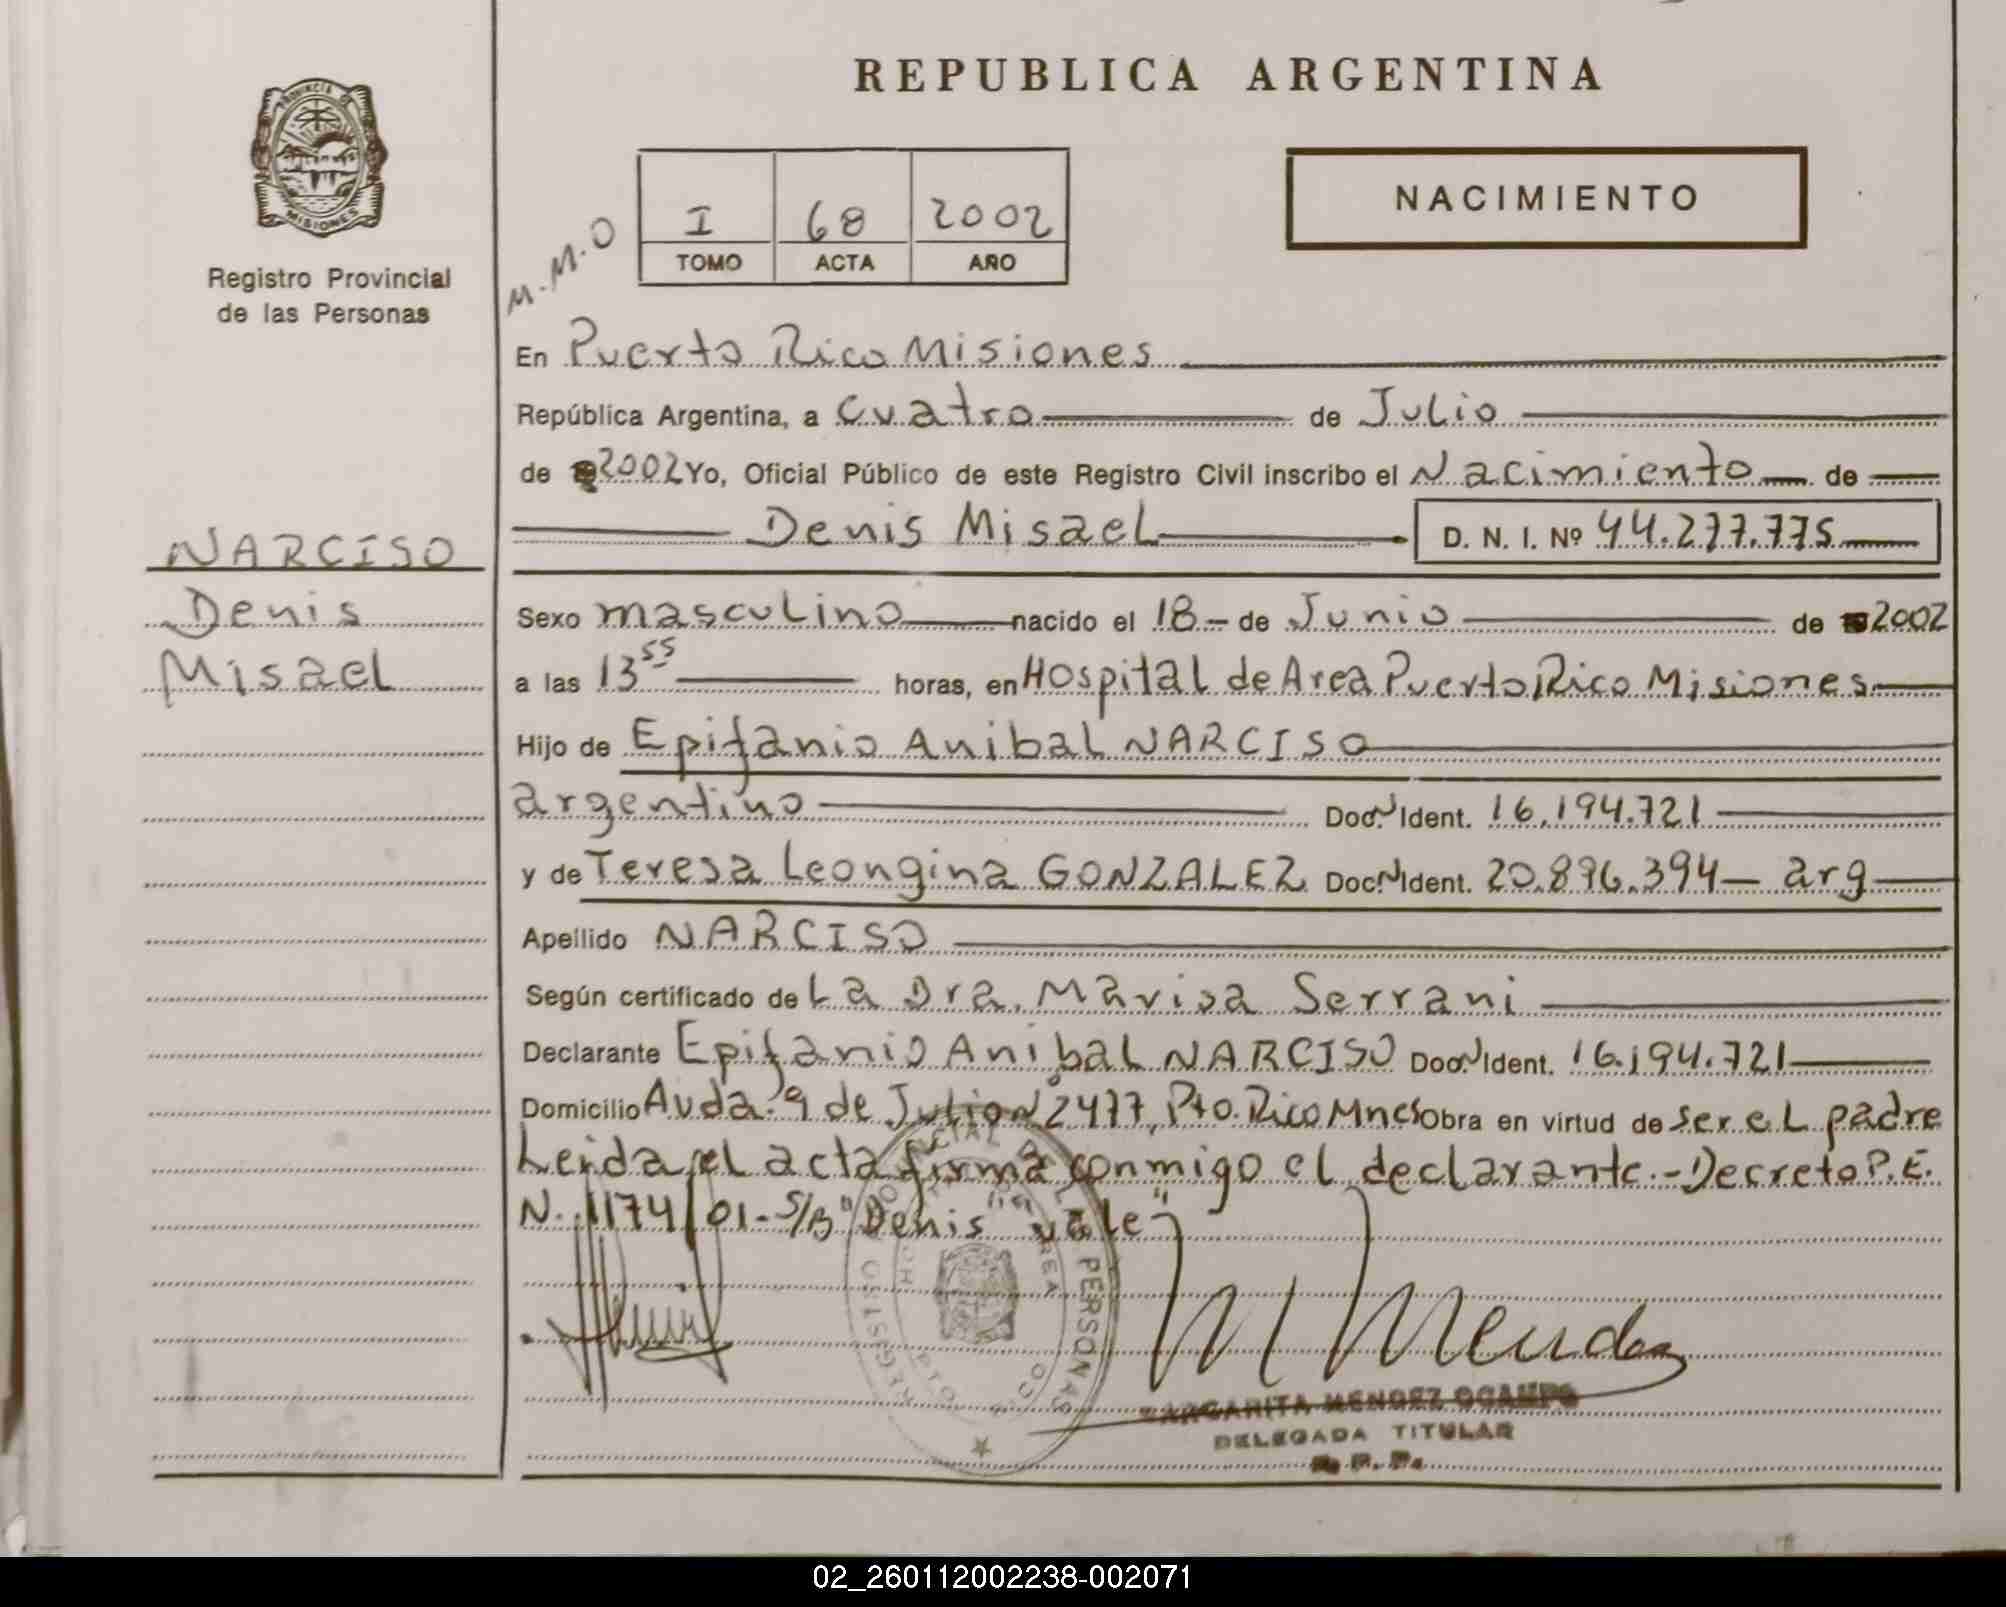 REPUBLICA ARGENTINA
PROVINCIA DE
MISIONES
Registro Provincial
de las Personas
M.M.O
I 68 2002
TOMO ACTA AÑO
NACIMIENTO
En Puerto Rico Misiones
República Argentina, a cuatro de Julio
de 2002 Yo, Oficial Público de este Registro Civil inscribo el Nacimiento de
Denis Misael D. N. I. Nº 44.277.775
NARCISO
Denis
Misael
Sexo masculino nacido el 18 de Junio de 2002
a las 13 55 horas, en Hospital de Area Puerto Rico Misiones
Hijo de Epifanio Anibal NARCISO
argentino Doc. N Ident. 16.194.721
y de Teresa Leongina GONZALEZ Doc. N Ident. 20.896.394 - arg
Apellido NARCISO
Según certificado de La Dra. Marisa Serrani
Declarante Epifanio Anibal NARCISO Doc. N Ident. 16.194.721
Domicilio Avda. 9 de Julio Nº 2477, Pto. Rico Mnes Obra en virtud de ser el padre
Leida el acta firma conmigo el declarante.- Decreto P.E.
N. 1174/01 - S/B "Denis" vale"
M Mendez
MARGARITA MENDEZ OCAMPO
DELEGADA TITULAR
R. P. P.
02_260112002238-002071